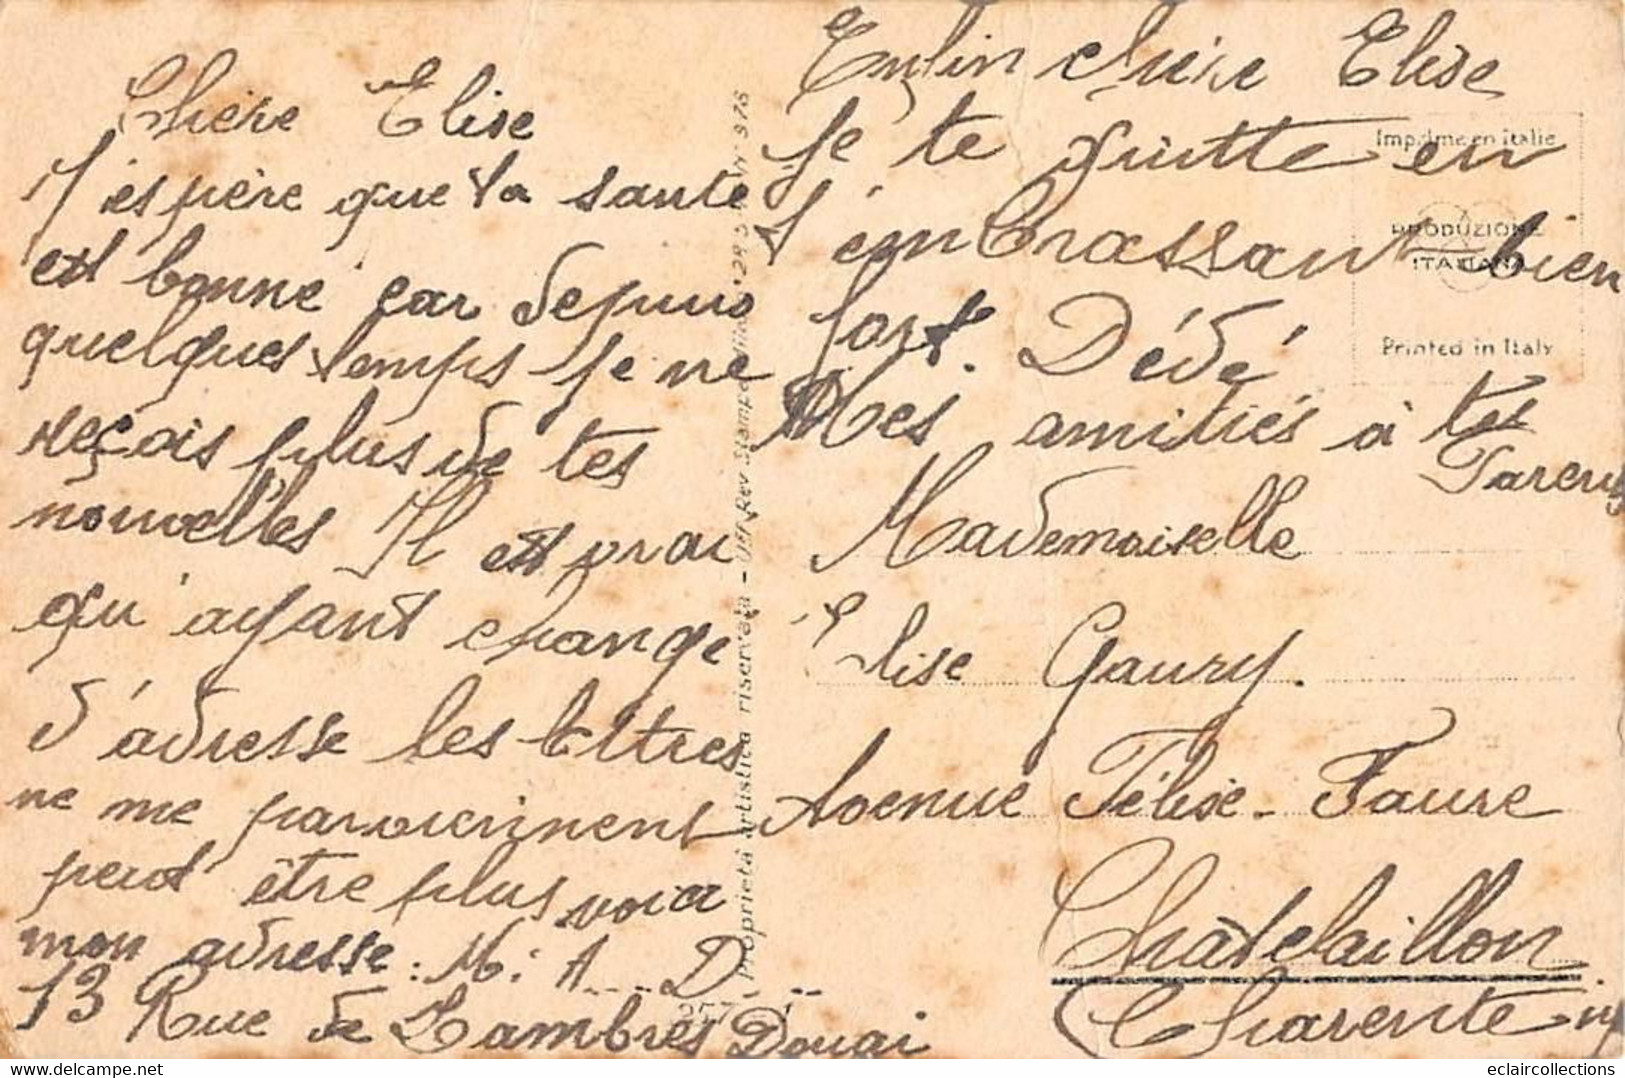 Chère Elise
J'espère que ta santé
est bonne car depuis
quelques temps je ne
reçois plus de tes
nouvelles Il est vrai
qu'ayant change
d'adresse les lettres
ne me parviennent
peut être plus voici
mon adresse : M: A....D....
13 Rue de Lambres Douai
Enfin chère Elise
Je te quitte en
t'embrassant bien
fort. Dédé
Mes amitiés à tes
Parents
Mademoiselle
Elise Gaury.
Avenue Félixe-Faure
Châtelaillon
Charente inf
Imprimé en Italie
PRODUZIONE
ITALIANA
Printed in Italy
Proprietà artistica riservata - Uff. Rev. Stampa
eclaircollections